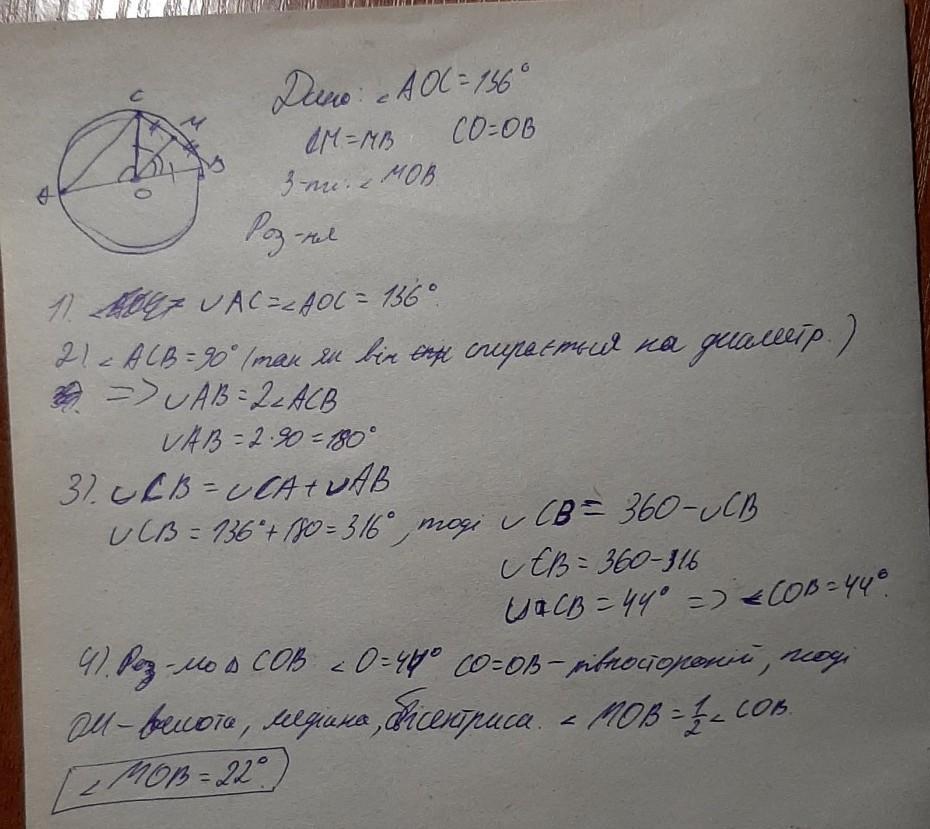 C
M
B
A
O
Дано: ∠AOC = 136°
CM = MB CO = OB
З-ти: ∠MOB
Роз-ня
1). ∪AC = ∠AOC = 136°.
2) ∠ACB = 90° (так як він спирається на диаметр.)
=> ∪AB = 2∠ACB
∪AB = 2·90 = 180°
3). ∪CB = ∪CA + ∪AB
∪CB = 136° + 180 = 316°, тоді ∪CB = 360 - ∪CB
∪CB = 360 - 316
∪CB = 44° => ∠COB = 44°.
4). Роз-мо △ COB ∠O = 44° CO = OB - рівносторонній, тоді
OM - висота, медіана, бісектриса. ∠MOB = 1/2 ∠COB.
∠MOB = 22°